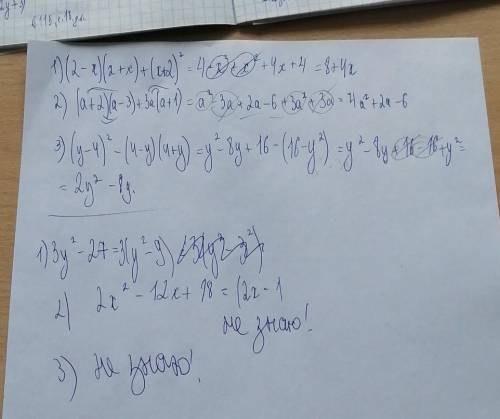 6115, 1.18
1) (2-x)(2+x)+(x+2)² = 4-x²+x²+4x+4 = 8+4x
2) (a+2)(a-3)+3a(a+1) = a²-3a+2a-6+3a²+3a = 4a²+2a-6
3) (y-4)²-(4-y)(4+y) = y²-8y+16-(16-y²) = y²-8y+16-16+y² =
= 2y²-8y.
1) 3y²-27 = 3(y²-9)
2) 2x²-12x+18 = (2x-1
не знаю!
3) не знаю!